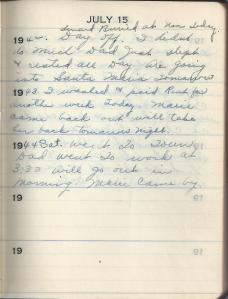 JULY 15
Buried at Nine Today.
194 Day Off. I didn't
do much Dad Just slept
& rested all Day Are going
into Santa Maria Tomorrow
1943. I washed & paid Rent for
another week Today. Marie
came back out will take
her back tomorrow night.
1944 Sat. went to Town
Dad went to work at
3:30 will go out in
morning. Marie Came by.
19
19